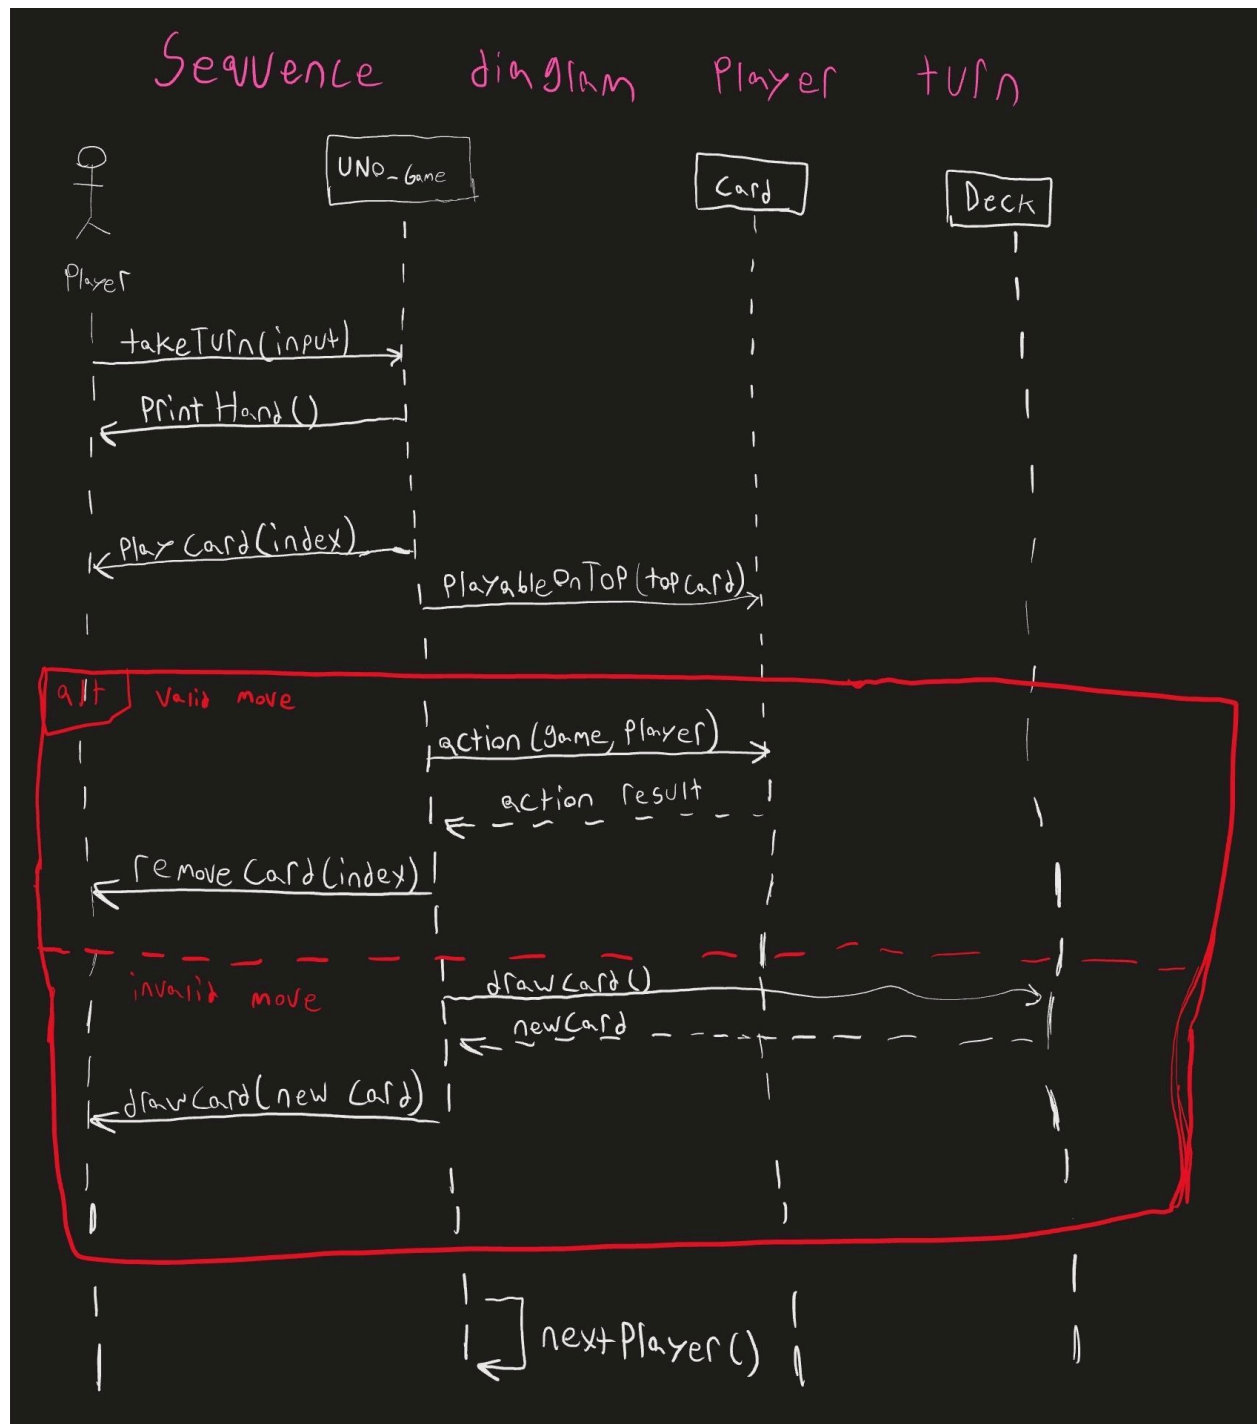 Sequence diagram Player turn
UNO_Game
Card
Deck
Player
takeTurn(input)
PrintHand()
PlayCard(index)
PlayableOnTop(topCard)
alt valid move
action(game, Player)
action result
removeCard(index)
invalid move
drawCard()
newCard
drawCard(new Card)
nextPlayer()